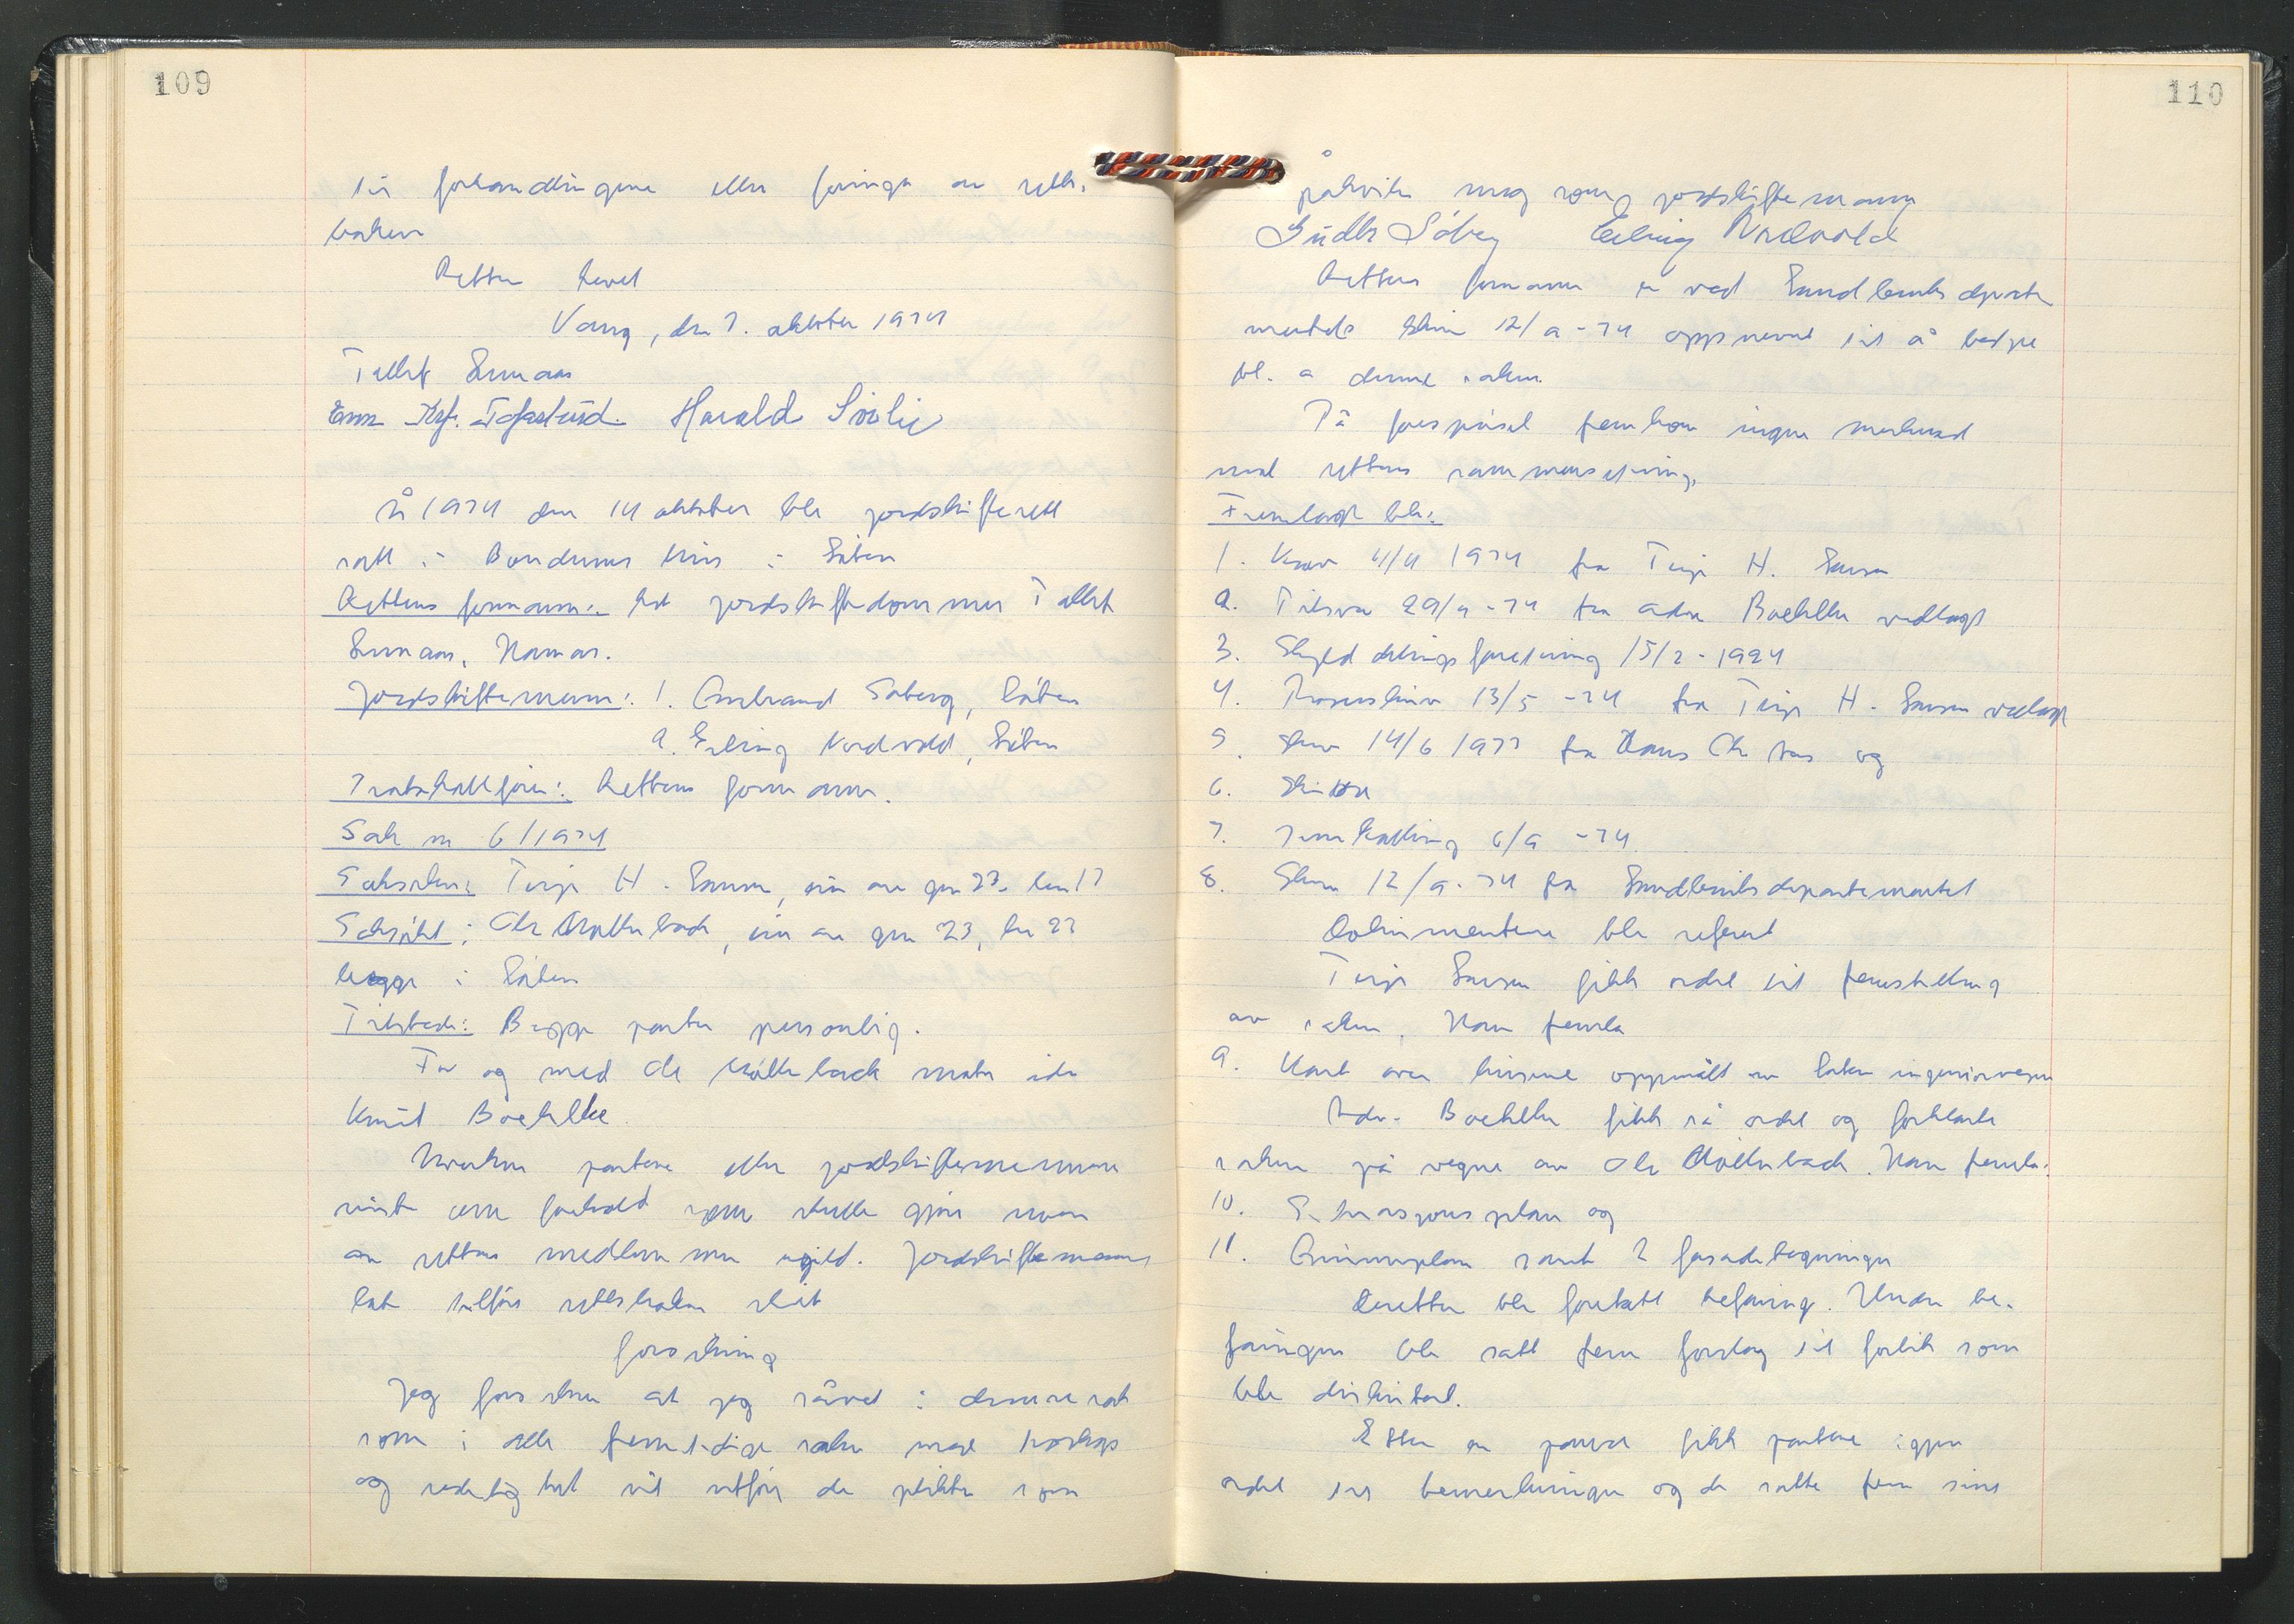 109
til forhandlingene eller føringa av retts-
boken
Retten hevet
Vang, den 7. oktober 1974
Tallef
Harald
År 1974 den 14 oktober ble jordskifterett
satt i Bøndernes Hus i Løten
Rettens formann: Ast jordskiftedommer Tallef
Hamar.
Jordskiftemenn: 1. Gudbrand Søberg, Løten
2. Erling Nordvold, Løten
Protokollfører: Rettens formann.
Sak nr 6/1974
Saksøker: Terje H. Larsen, eier av gnr 23 bnr 17
Saksøkt: Ole Møllerback, eier av gnr 23, bnr 27
begge i Løten
Tilstede: Begge parter personlig.
For og med Ole Møllerback møter adv
Knut Boehlke
Hverken partene eller jordskiftemennene
visste om forhold som skulle gjøre noen
av rettens medlemmer ugild. Jordskiftemenn
rettsboken slik
forsikring
Jeg forsikrer at jeg såvel i denne sak
som i alle fremtidige saker med troskap
og redelighet vil utføre de plikter som
110
påhviler meg som jordskiftemann
Gudbr Søberg Erling Nordvold
Rettens formann er ved Landbruksdeparte
mentets skriv 12/9-74 oppnevnt til å betjene
bl. a denne saken.
På forespørsel fremkom ingen merknad
mot rettens sammensetning.
Fremlagt ble:
1. Krav 4/4 1974 fra Terje H. Larsen
2. Tilsvar 29/4-74 fra adv Boehlke vedlagt
3. Skylddelingsforretning 15/2-1924
4. Prosesskriv 13/5-74 fra Terje H. Larsen vedlagt
5. Skriv 14/6 1973 fra Hans Chr og
6. Skisse
7. Innkalling 6/9-74
8. Skriv 12/9-74 fra Landbruksdepartementet
Dokumentene ble referert
Terje Larsen fikk ordet til fremstilling
av saken. Han fremla
9. Kart over husene oppmålt av Løten ingeniørvesen
Adv. Boehlke fikk så ordet og forklarte
saken på vegne av Ole Møllerback. Han fremla:
10. Situasjonsplan og
11. Grunnplan samt 2 fasadetegninger
Deretter ble foretatt befaring. Under be-
faringen ble satt frem forslag til forlik som
ble diskutert.
Etter en pause fikk partene igjen
ordet til bemerkninger og de satte frem sine